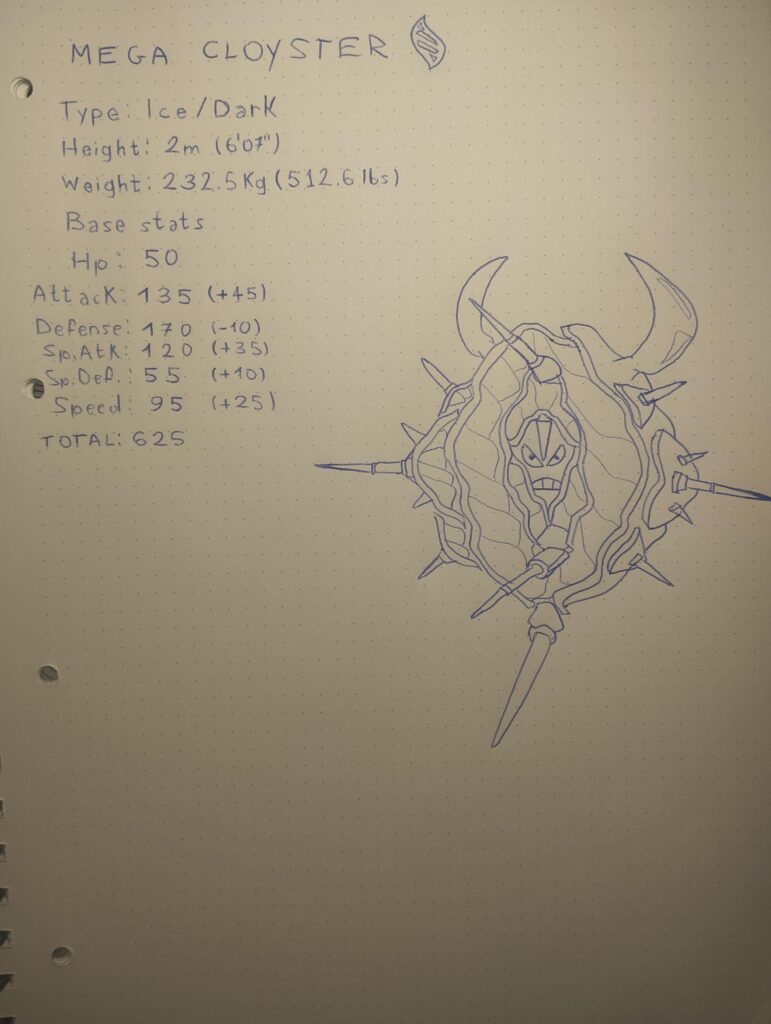 MEGA CLOYSTER
Type: Ice/Dark
Height: 2m (6'07")
Weight: 232.5Kg (512.6 lbs)
Base stats
Hp: 50
Attack: 135 (+45)
Defense: 170 (-10)
Sp.Atk: 120 (+35)
Sp.Def.: 55 (+10)
Speed: 95 (+25)
TOTAL: 625